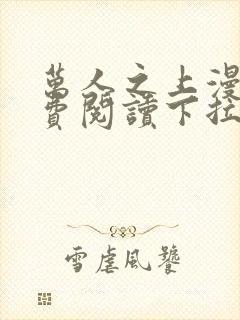 萬人之上漫
費閱讀下拉
雪虐風饕